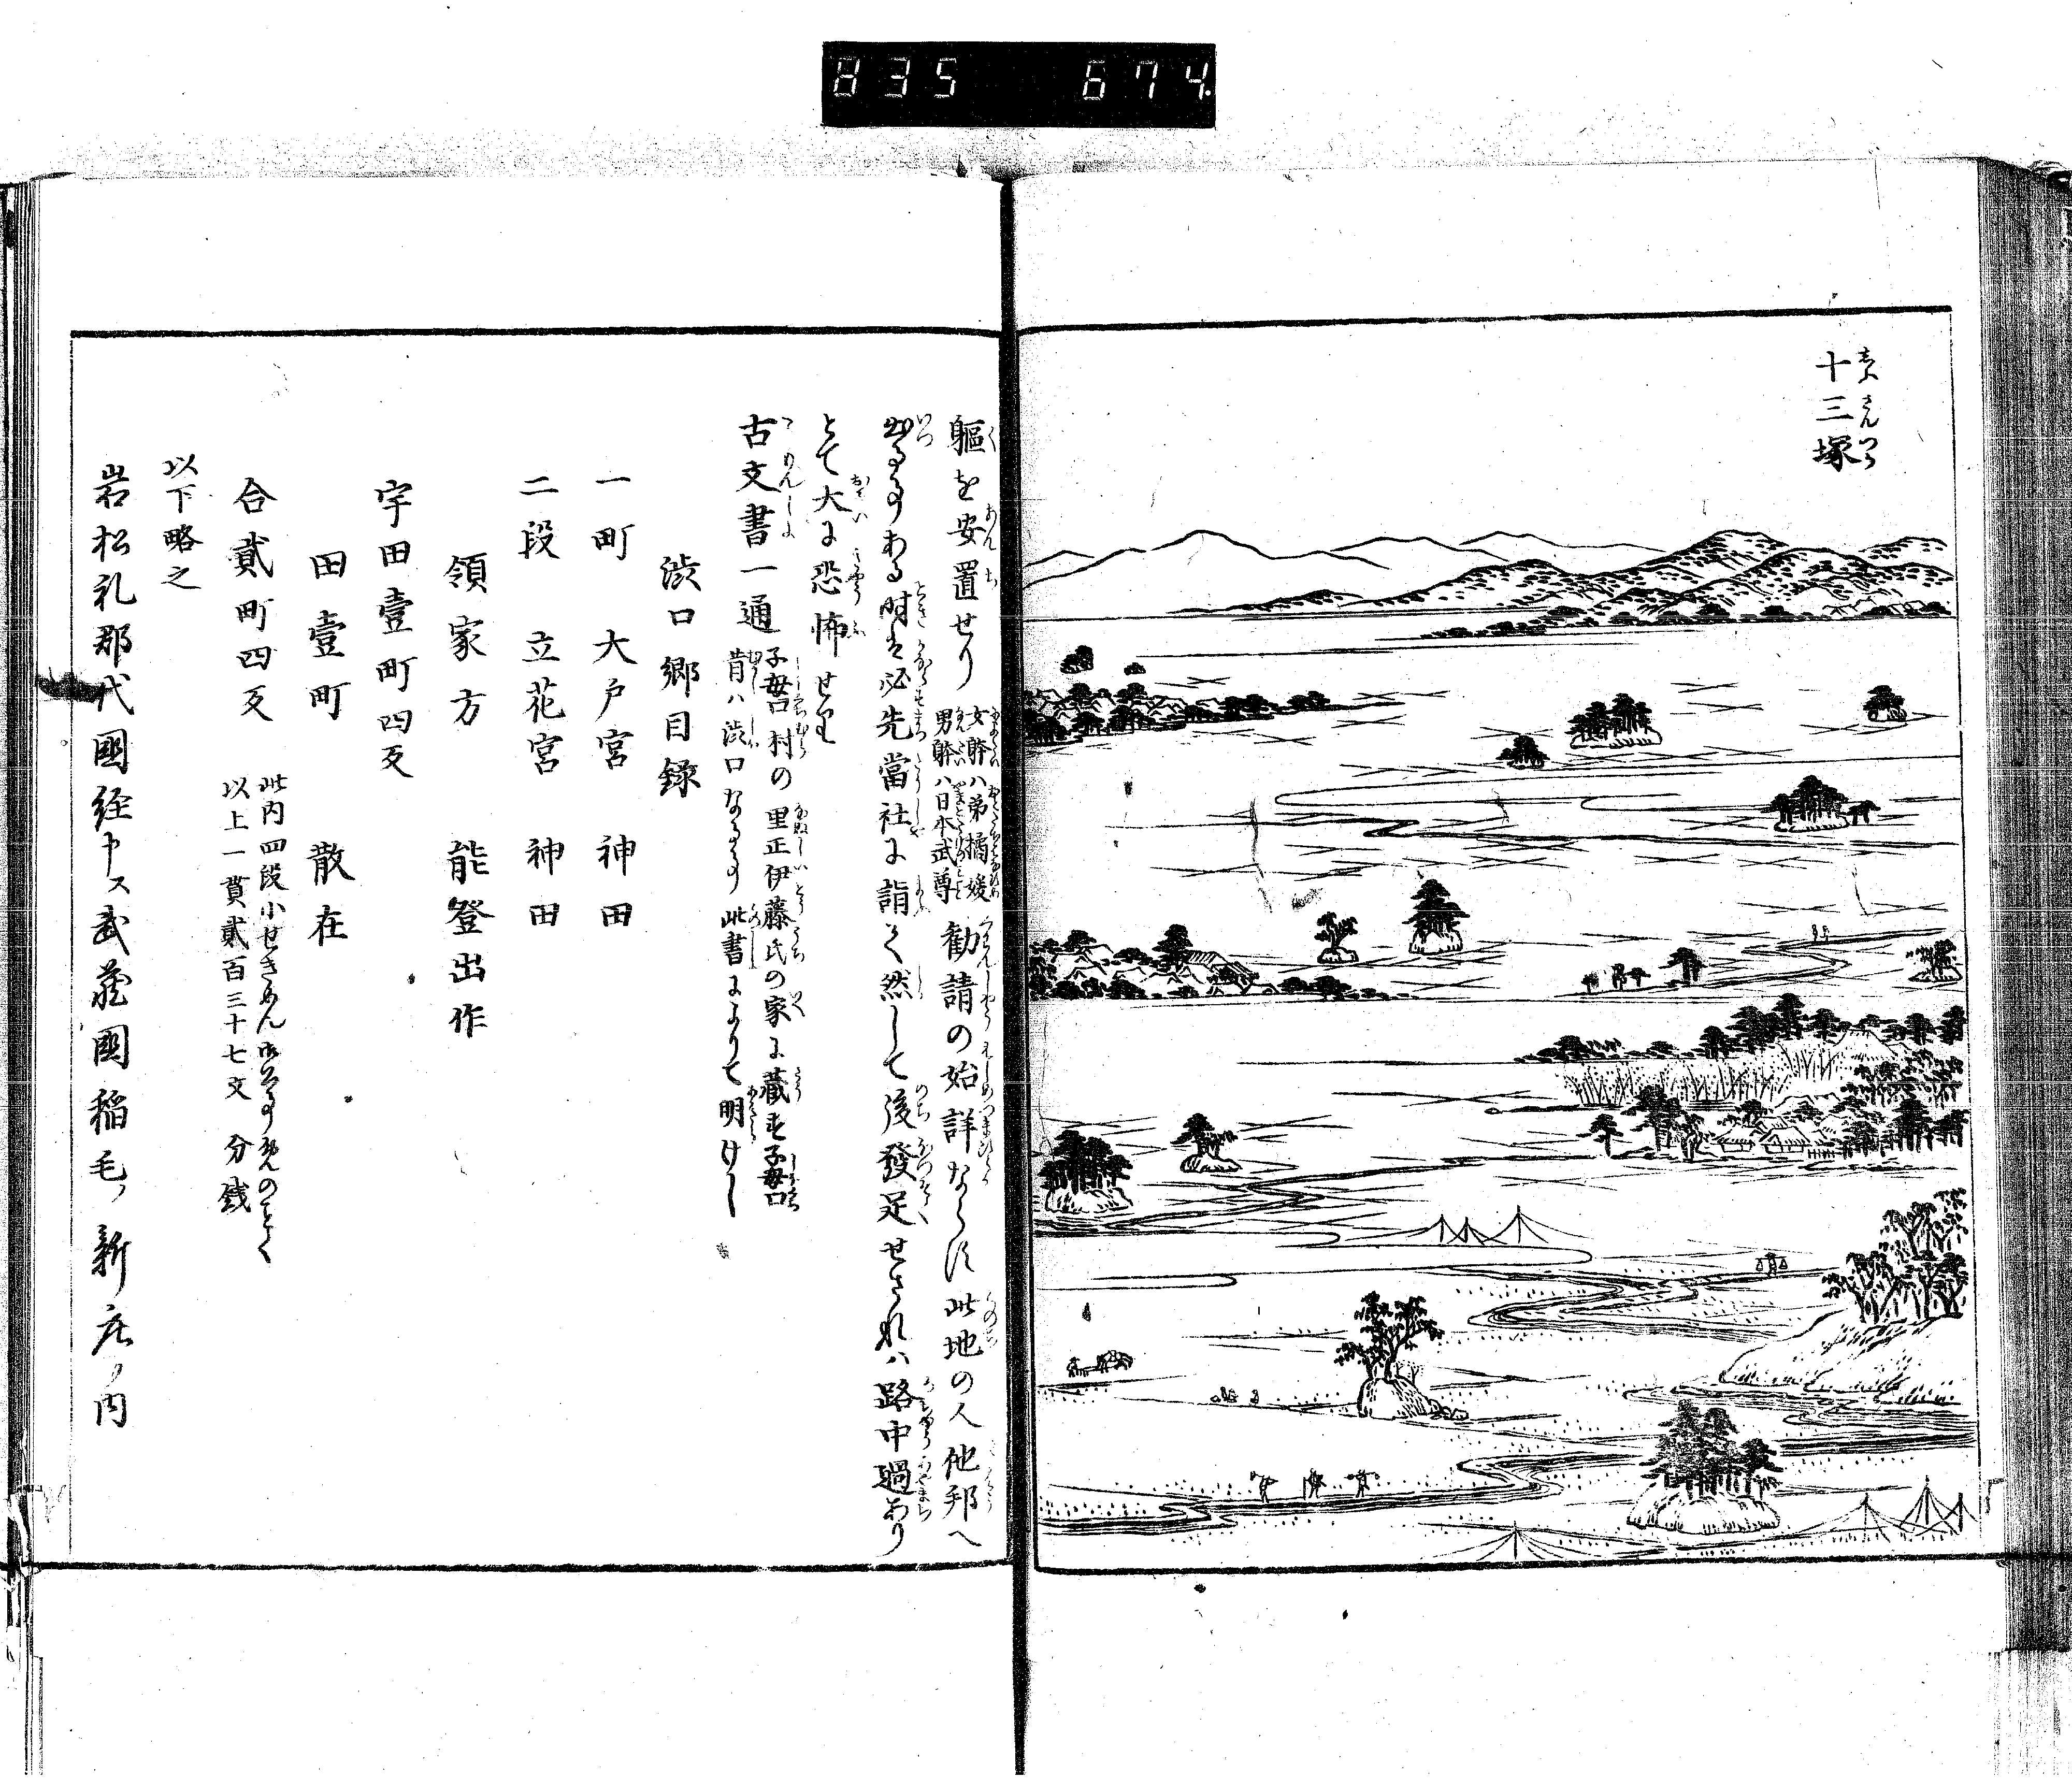 835 674
十三塚
じふさんつか
躯を安置せり 女躰ハ弟橘媛 男躰ハ日本武尊 勧請の始詳ならす此地の人他邦へ
出る事ある時は必先當社に詣て然して後發足せされハ路中過あり
とて大に恐怖せり
古文書一通 子母口村の里正伊藤氏の家に蔵す子母口 昔ハ渋口なる事此書によりて明けし
渋口郷目録
一町 大戸宮 神田
二段 立花宮 神田
領家方 能登出作
宇田壹町四反
田壹町 散在
合貳町四反 此内四段小せきめん 以上一貫貳百三十七文 分銭
以下略之
岩松礼部代國経申ス武蔵國稲毛ノ新庄ノ内